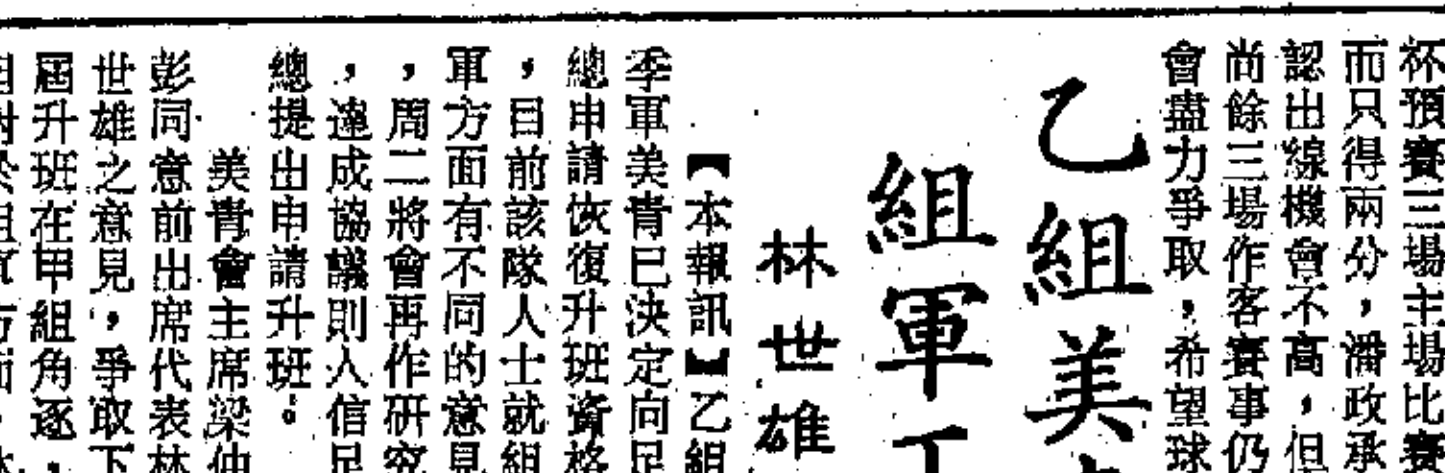 杯預賽三場主場比賽
而只得兩分，潘政承
認出線機會不高，但
尚餘三場作客賽事仍
會盡力爭取，希望球
乙組美
組軍
林世雄
【本報訊】乙組
季軍美青已決定向足
總申請恢復升班資格
，目前該隊人士就組
軍方面有不同的意見
，周二將會再作研究
，達成協議則入信足
總提出申請升班。
美青會主席梁仲
彭同意前出席代表林
世雄之意見，爭取下
屆升班在甲組角逐，